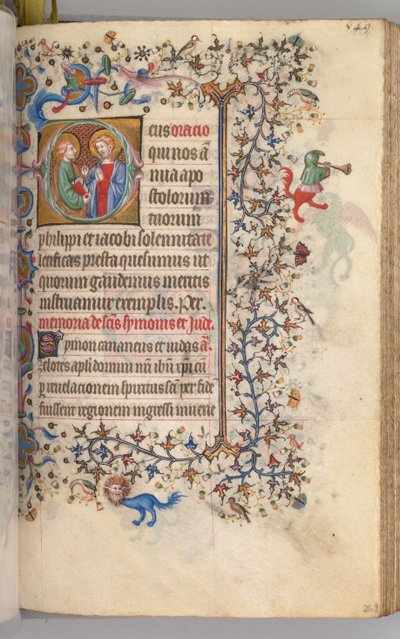 349.
eus oracio
qui nos ā
nua apo
stolorum
tuorum
philippi et iacobi solemnitate
letificas presta quesumus ut
quorum gaudemus meritis
instruamur exemplis. Per.
memoria de scīs symonis et Jude.
Symon cananeus et iudas ā
zelotes apli domini nr̄i ihū xpi cū
p reuelacionem spiritus scī per fide
fuissent regionem ingressi inuenē